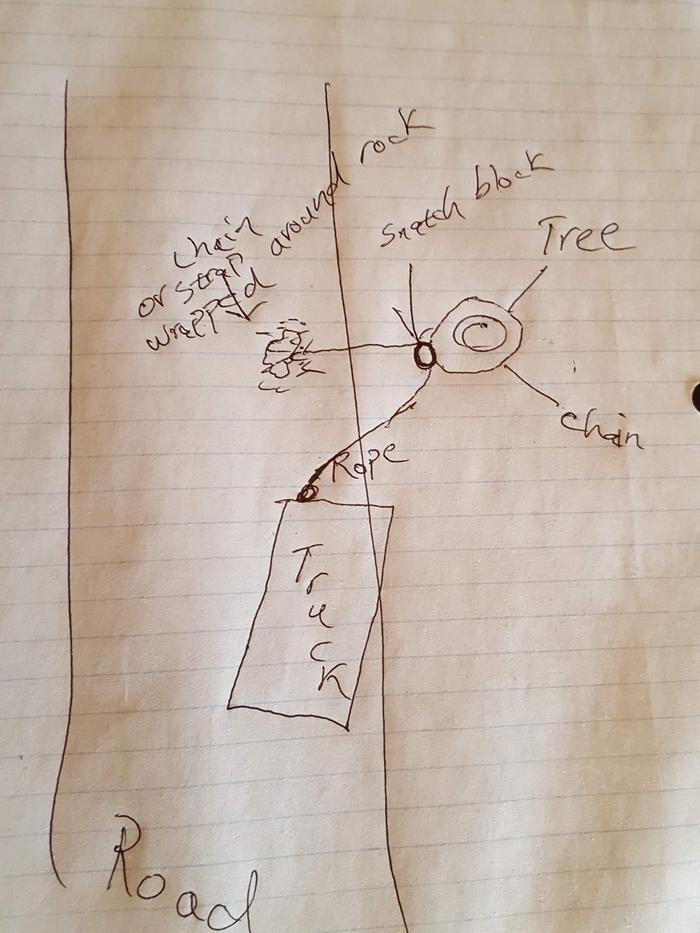 chain
or strap
wrapped around rock
Snatch block
Tree
chain
Rope
Truck
Road